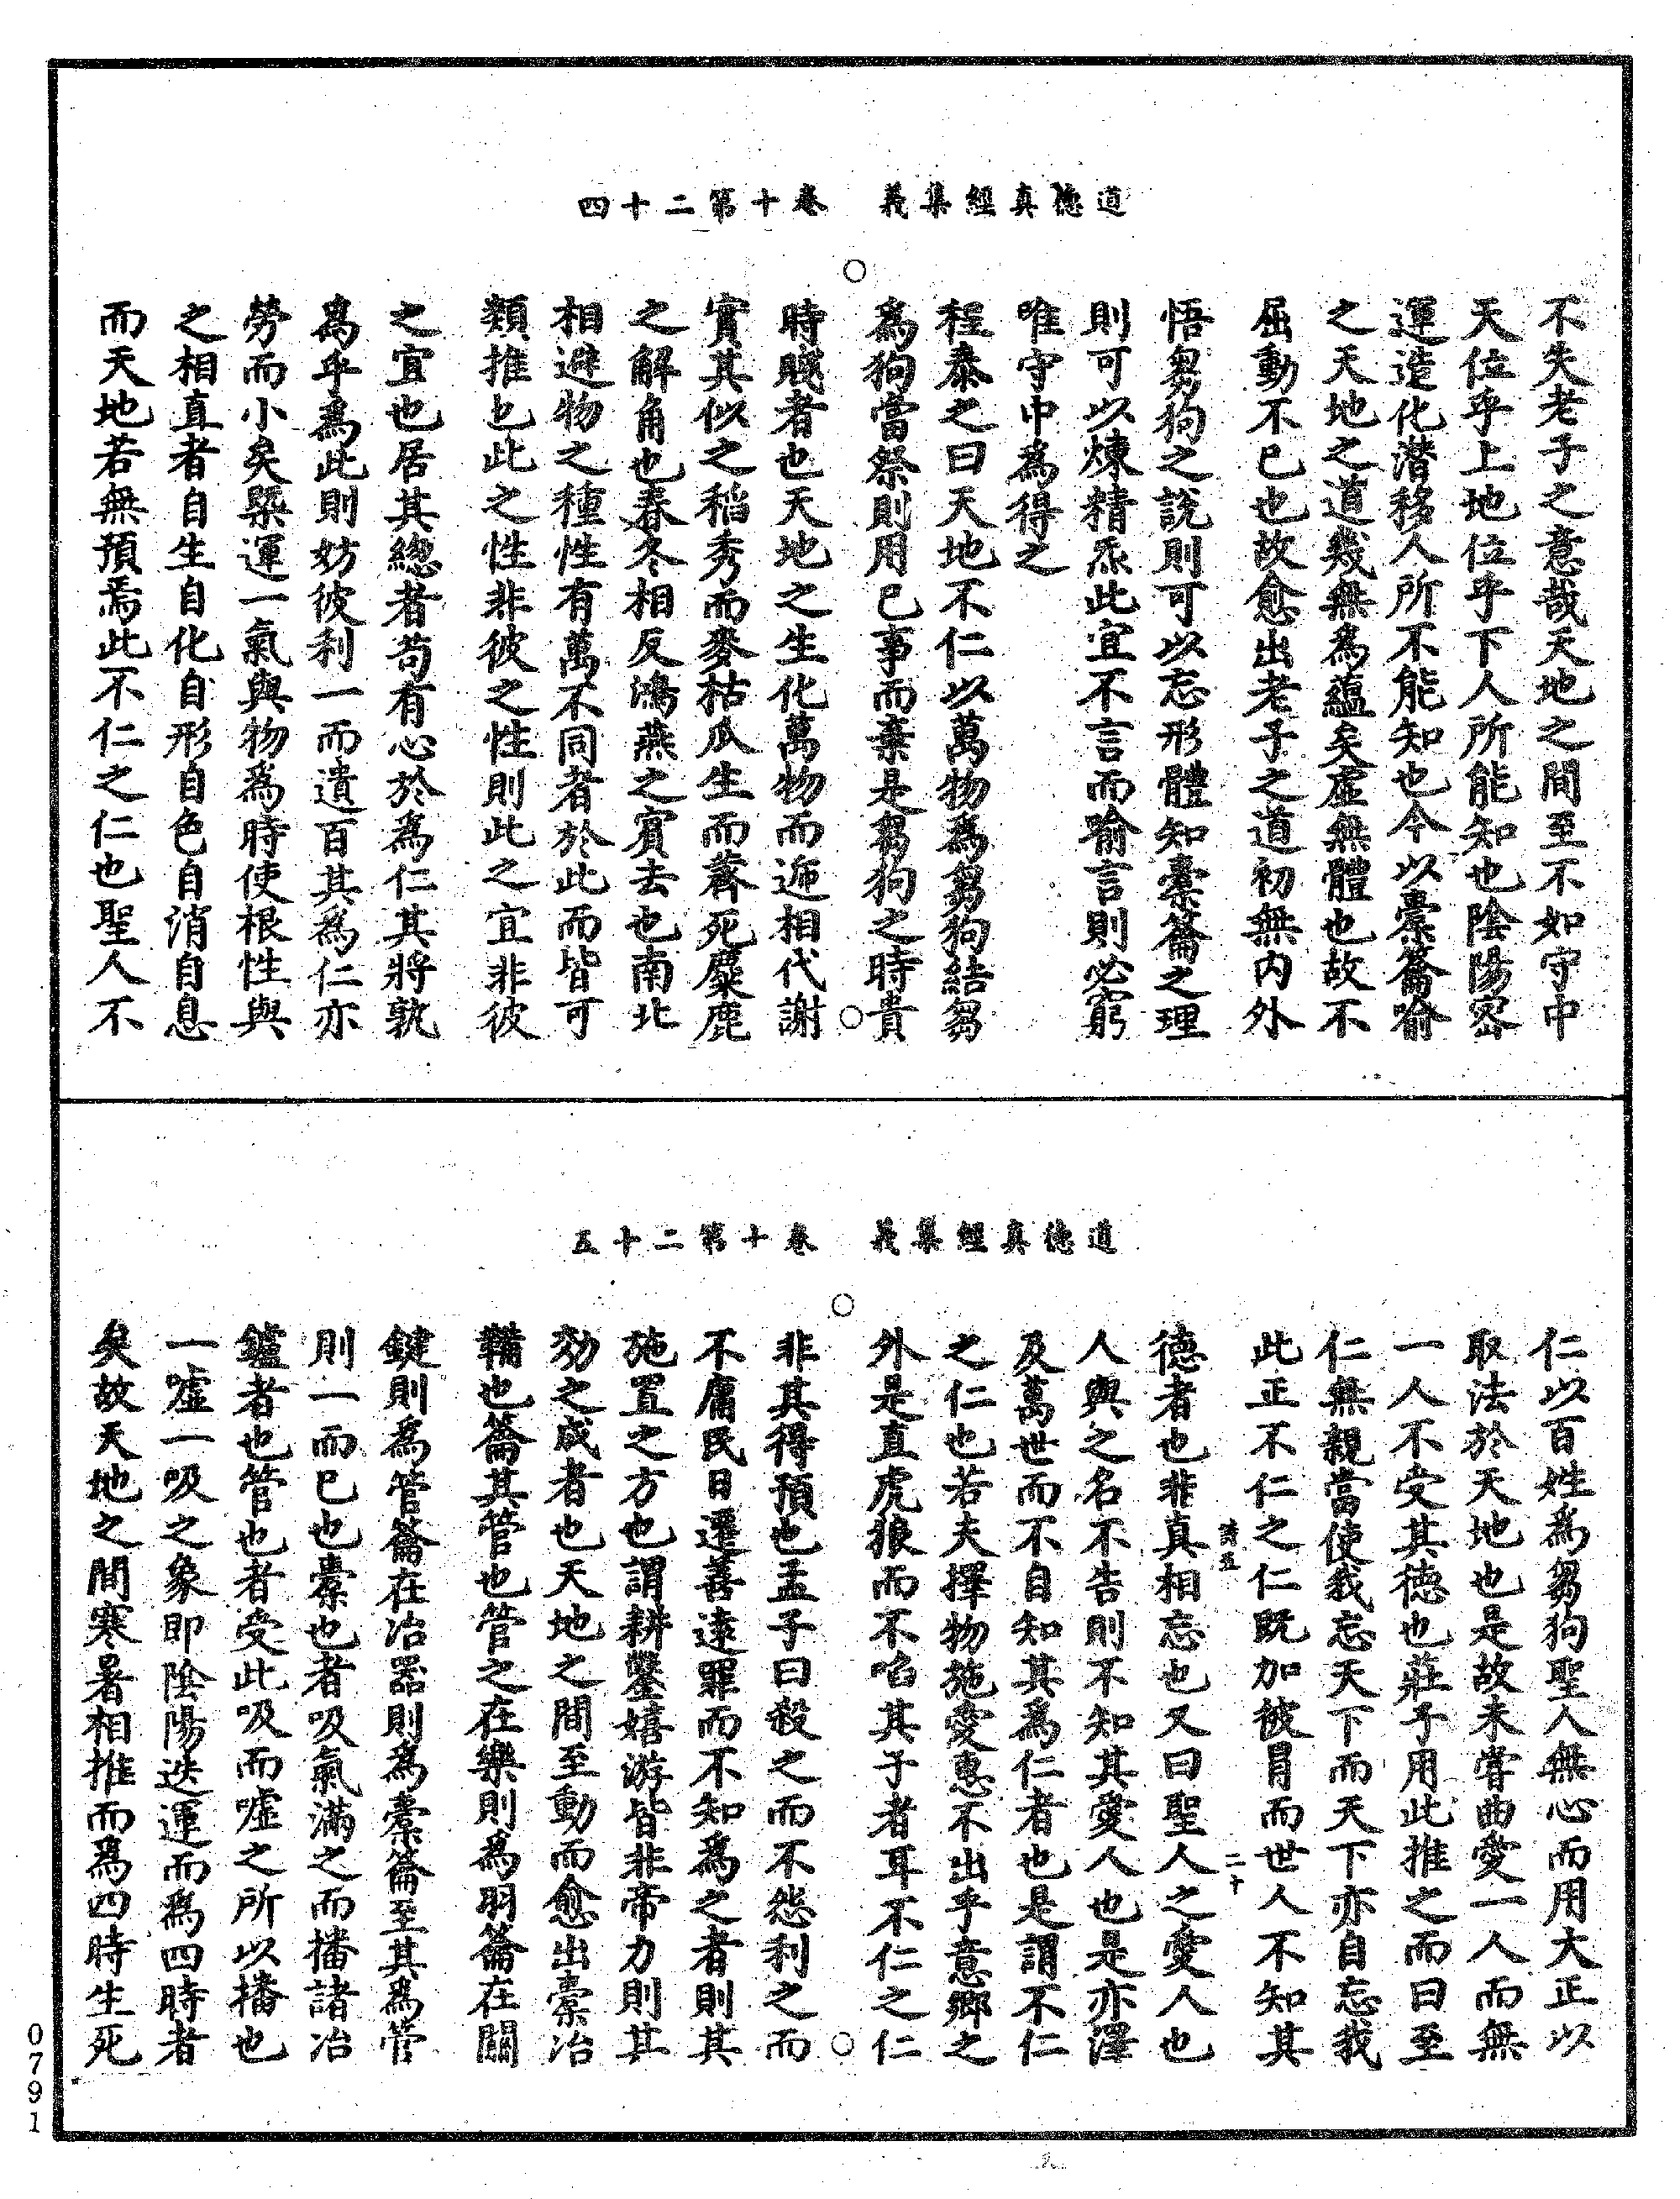 道德真經集義　卷十第二十四
不失老子之意哉天地之間至不如守中
天位乎上地位乎下人所能知也陰陽密
運造化潛移人所不能知也今以橐籥喻
之天地之道幾無為蘊矣虛無體也故不
屈動不已也故愈出老子之道初無內外
悟芻狗之說則可以忘形體知橐籥之理
則可以煉精炁此宜不言而喻言則必窮
唯守中為得之
程泰之曰天地不仁以萬物為芻狗結芻
為狗當祭則用已事而棄是芻狗之時貴
時賤者也天地之生化萬物而迊相代謝
實其似之稻秀而麥枯瓜生而薺死麋鹿
之解角也春冬相反鴻燕之賓去也南北
相避物之種性有萬不同者於此而皆可
類推也此之性非彼之性則此之宜非彼
之宜也居其總者苟有心於為仁其將孰
為乎為此則妨彼利一而遺百其為仁亦
勞而小矣槩運一氣與物為時使根性與
之相直者自生自化自形自色自消自息
而天地若無預焉此不仁之仁也聖人不
道德真經集義　卷十第二十五
仁以百姓為芻狗聖人無心而用大正以
取法於天地也是故未嘗曲愛一人而無
一人不受其德也莊子用此推之而曰至
仁無親當使我忘天下而天下亦自忘我
此正不仁之仁既加被冒而世人不知其
德者也非真相忘也又曰聖人之愛人也
人與之名不告則不知其愛人也是亦澤
及萬世而不自知其為仁者也是謂不仁
之仁也若夫擇物施愛惠不出乎意鄉之
外是直虎狼而不啗其子者耳不仁之仁
非其得預也孟子曰殺之而不怨利之而
不庸民日遷善遠罪而不知為之者則其
施置之方也謂耕鑿嬉游皆非帝力則其
効之成者也天地之間至動而愈出橐冶
鞴也籥其管也管之在樂則為羽籥在關
鍵則為管籥在冶器則為橐籥至其為管
則一而已也橐也者吸氣滿之而播諸冶
鑪者也管也者受此吸而噓之所以播也
一噓一吸之象即陰陽迭運而為四時者
矣故天地之間寒暑相推而為四時生死
二十
0791